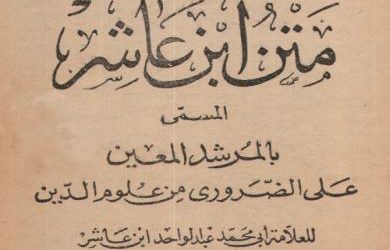 متن ابن عاشر
المسمى
بالمرشد المعين
على الضرورى من علوم الدين
للعلامة ابى محمد عبد الواحد ابن عاشر